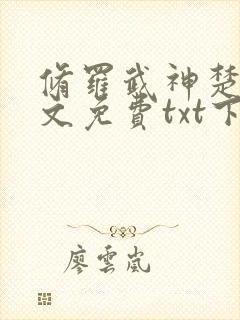 脩羅武神楚
文免費txt下
廖雲嵐